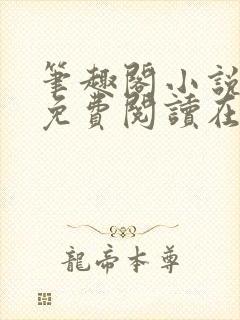 筆趣閣小說
免費閱讀在
龍帝本尊